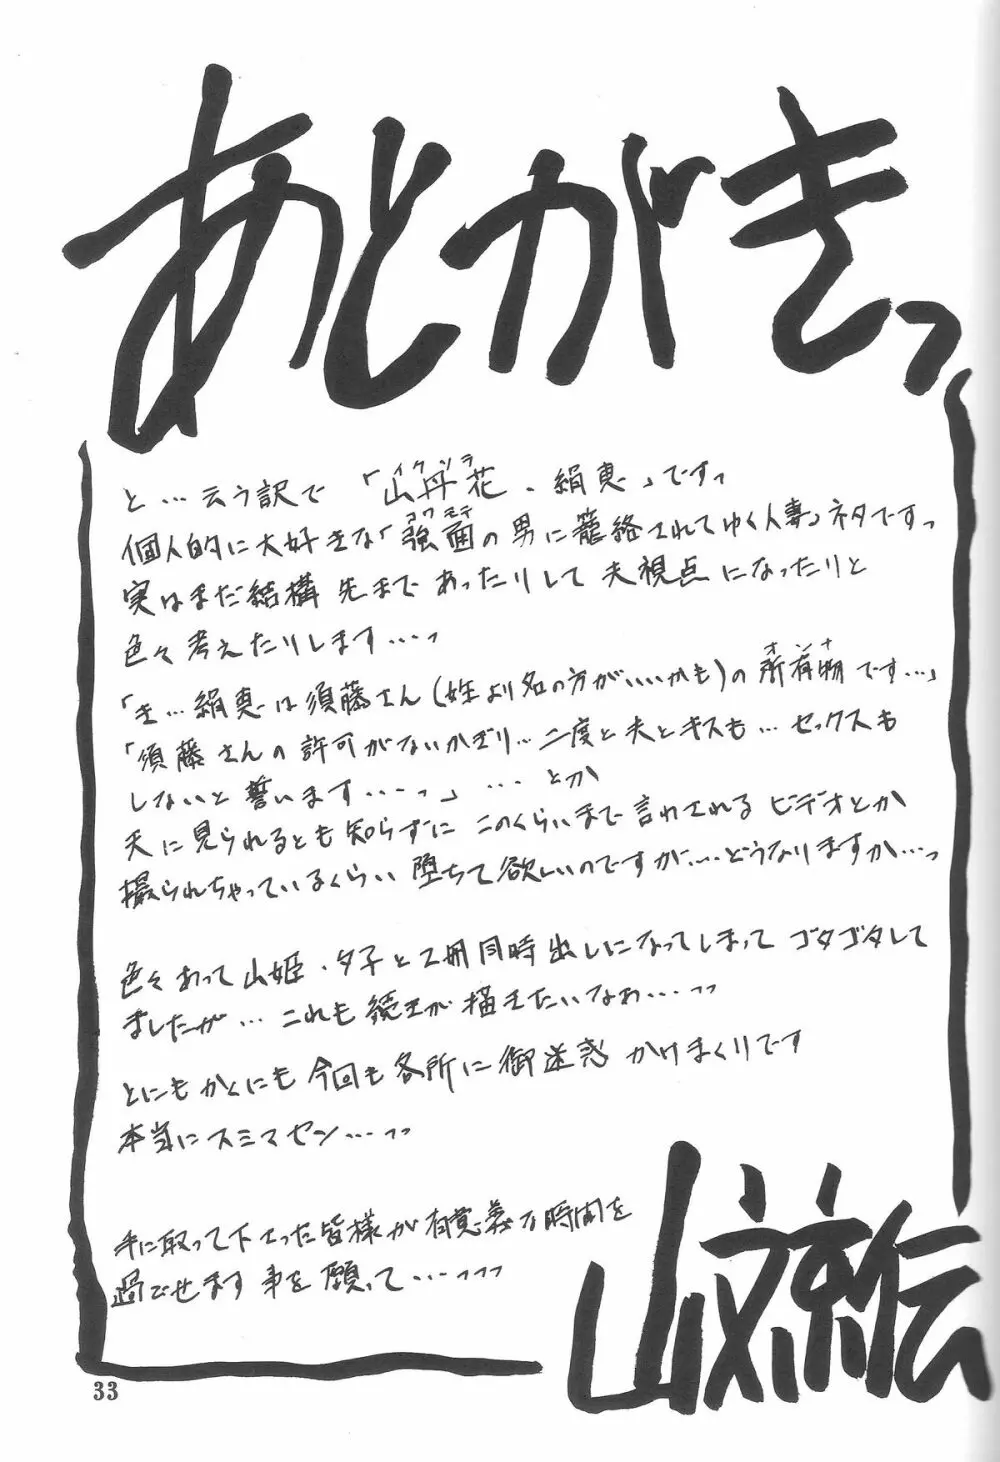 あとがきっ
と…云う訳で「山丹花、絹恵」ですっ
イクソラ
個人的に大好きな「強面の男に籠絡されてゆく人妻」ネタですっ
コワモテ
実はまだ結構 先まで あったりして 夫視点 になったりと
色々 考えたりします…っ
「き…絹恵は須藤さん(姓より名の方がいいかも)の所有物です…」
オンナ
「須藤さんの許可がないかぎり…二度と夫とキスも…セックスも
しないと誓います…っ」…とか
夫に見られるとも知らずに このくらいまで言わされる ビデオとか
撮られちゃっているくらい 堕ちて欲しいのですが…どうなりますか…っ
色々あって山姫・夕子と2冊同時出しになってしまって ゴタゴタして
ましたが…これも続きが描きたいなぁ…っっ
とにもかくにも今回も各所に御迷惑 かけまくりです
本当にスミマセン…っっ
手に取って下さった皆様が有意義な時間を
過ごせます事を願って…っっっ
山文京伝
33